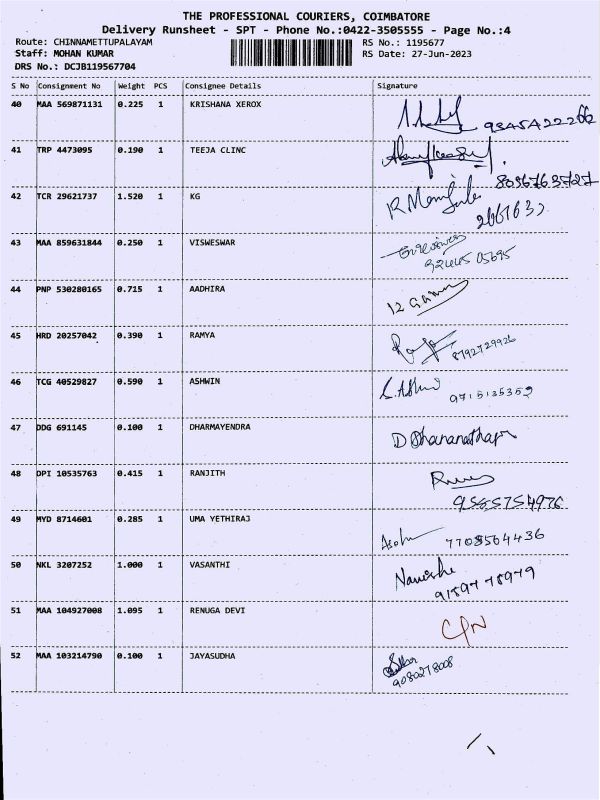 THE PROFESSIONAL COURIERS, COIMBATORE
Delivery Runsheet - SPT - Phone No.:0422-3505555 - Page No.:4
Route: CHINNAMETTUPALAYAM RS No.: 1195677
Staff: MOHAN KUMAR RS Date: 27-Jun-2023
DRS No.: DCJB119567704
S No Consignment No Weight PCS Consignee Details Signature
40 MAA 569871131 0.225 1 KRISHANA XEROX
41 TRP 4473095 0.190 1 TEEJA CLINC
8056763727
42 TCR 29621737 1.520 1 KG
2661632
43 MAA 859631844 0.250 1 VISWESWAR
44 PNP 530280165 0.715 1 AADHIRA
45 HRD 20257042 0.390 1 RAMYA
8792729926
46 TCG 40529827 0.590 1 ASHWIN
9715135352
47 DDG 691145 0.100 1 DHARMAYENDRA
48 DPI 10535763 0.415 1 RANJITH
9565754976
49 MYD 8714601 0.285 1 UMA YETHIRAJ
7708564436
50 NKL 3207252 1.000 1 VASANTHI
51 MAA 104927008 1.095 1 RENUGA DEVI
52 MAA 103214790 0.100 1 JAYASUDHA
9080278008